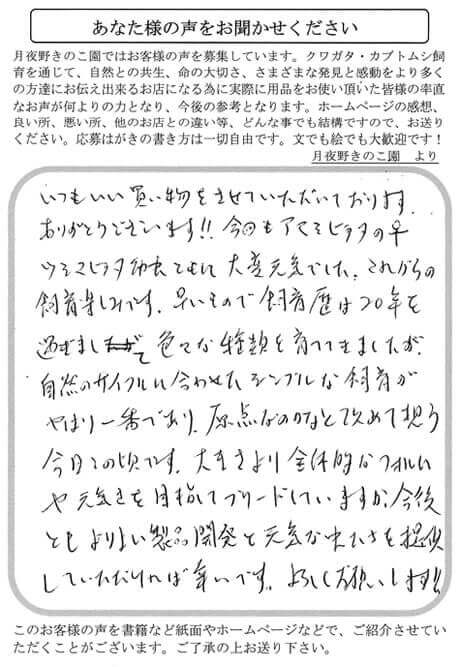 あなた様の声をお聞かせください
月夜野きのこ園ではお客様の声を募集しています。クワガタ・カブトムシ飼
育を通じて、自然との共生、命の大切さ、さまざまな発見と感動をより多く
の方達にお伝え出来るお店になる為に実際に用品をお使い頂いた皆様の率直
なお声が何よりの力となり、今後の参考となります。ホームページの感想、
良い所、悪い所、他のお店との違い等、どんな事でも結構ですので、お送り
ください。応募はがきの書き方は一切自由です。文でも絵でも大歓迎です！
月夜野きのこ園　より
いつもいい買い物をさせていただいております。
ありがとうございます!! 今回もアマミヒラタの♀
ヒラタ幼虫ともに大変元気でした。これからの
飼育楽しみです。早いもので飼育歴は20年を
過ぎまして色々な種類を育ててきましたが、
自然のサイクルに合わせたシンプルな飼育が
やはり一番であり、原点なのかなと改めて想う
今日この頃です。大きさより全体的なフォルム
や元気さを目指してブリードしていますが、今後
ともよりよい製品開発と元気な虫たちを提供
していただければ幸いです。よろしくお願いします!!
このお客様の声を書籍など紙面やホームページなどで、ご紹介させてい
ただくことがございます。ご了承の上お送り下さい。